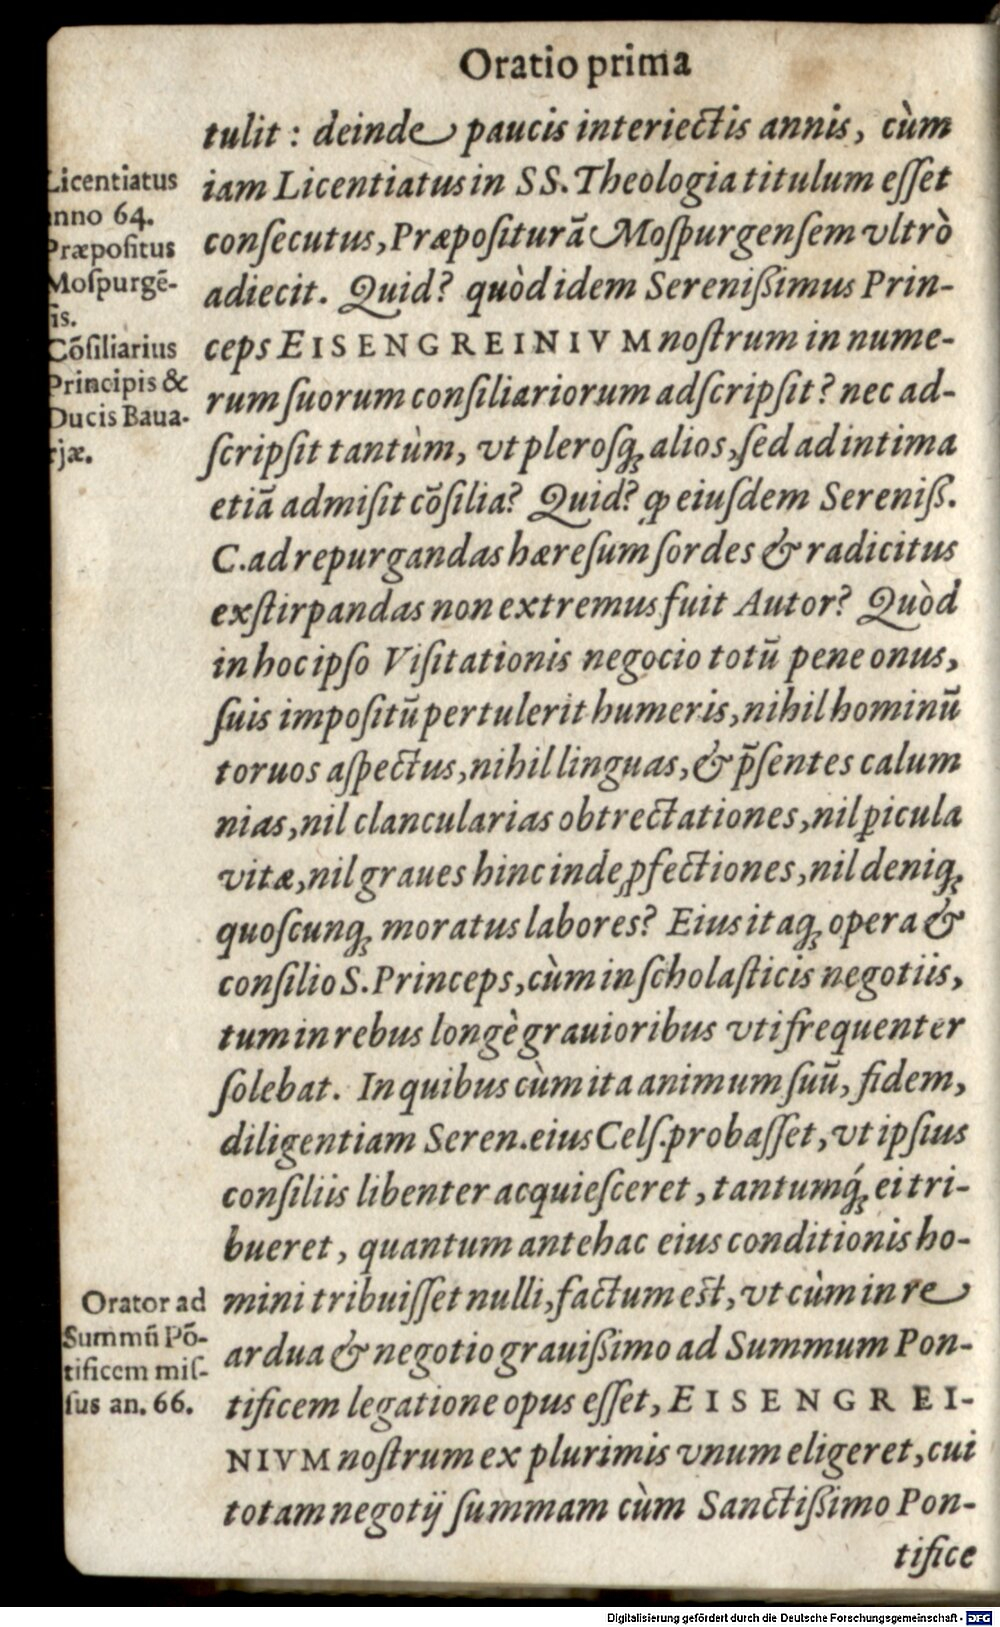 Oratio prima
tulit : deinde paucis interiectis annis, cùm
iam Licentiatus in SS. Theologia titulum eſſet
conſecutus, Præpoſiturā Moſpurgenſem vltrò
adiecit. Quid? quòd idem Sereniſſimus Prin-
ceps EISENGREINIVM noſtrum in nume-
rum ſuorum conſiliariorum adſcripſit? nec ad-
ſcripſit tantùm, vt pleroſqꝫ alios, ſed ad intima
etiā admiſit cōſilia? Quid? ꝙ eiuſdem Sereniſſ.
C. ad repurgandas hæreſum ſordes & radicitus
exſtirpandas non extremus fuit Autor? Quòd
in hoc ipſo Viſitationis negocio totū pene onus,
ſuis impoſitū pertulerit humeris, nihil hominū
toruos aſpectus, nihil linguas, & p̄ſentes calum
nias, nil clancularias obtrectationes, nil ꝑicula
vitæ, nil graues hinc inde ꝓfectiones, nil deniqꝫ
quoſcunqꝫ moratus labores? Eius itaqꝫ opera &
conſilio S. Princeps, cùm in ſcholaſticis negotiis,
tum in rebus longè grauioribus vti frequenter
ſolebat. In quibus cùm ita animum ſuū, fidem,
diligentiam Seren. eius Celſ. probaſſet, vt ipſius
conſiliis libenter acquieſceret, tantumq́ꝫ ei tri-
bueret, quantum antehac eius conditionis ho-
mini tribuiſſet nulli, factum est, vt cùm in re
ardua & negotio grauiſſimo ad Summum Pon-
tificem legatione opus eſſet, EISENGREI-
NIVM noſtrum ex plurimis vnum eligeret, cui
totam negotij ſummam cùm Sanctiſſimo Pon-
tifice
Licentiatus
anno 64.
Præpoſitus
Moſpurgē-
ſis.
Cōſiliarius
Principis &
Ducis Baua-
rjæ.
Orator ad
Summū Pō-
tificem miſ-
ſus an. 66.
Digitalisierung gefördert durch die Deutsche Forschungsgemeinschaft - DFG